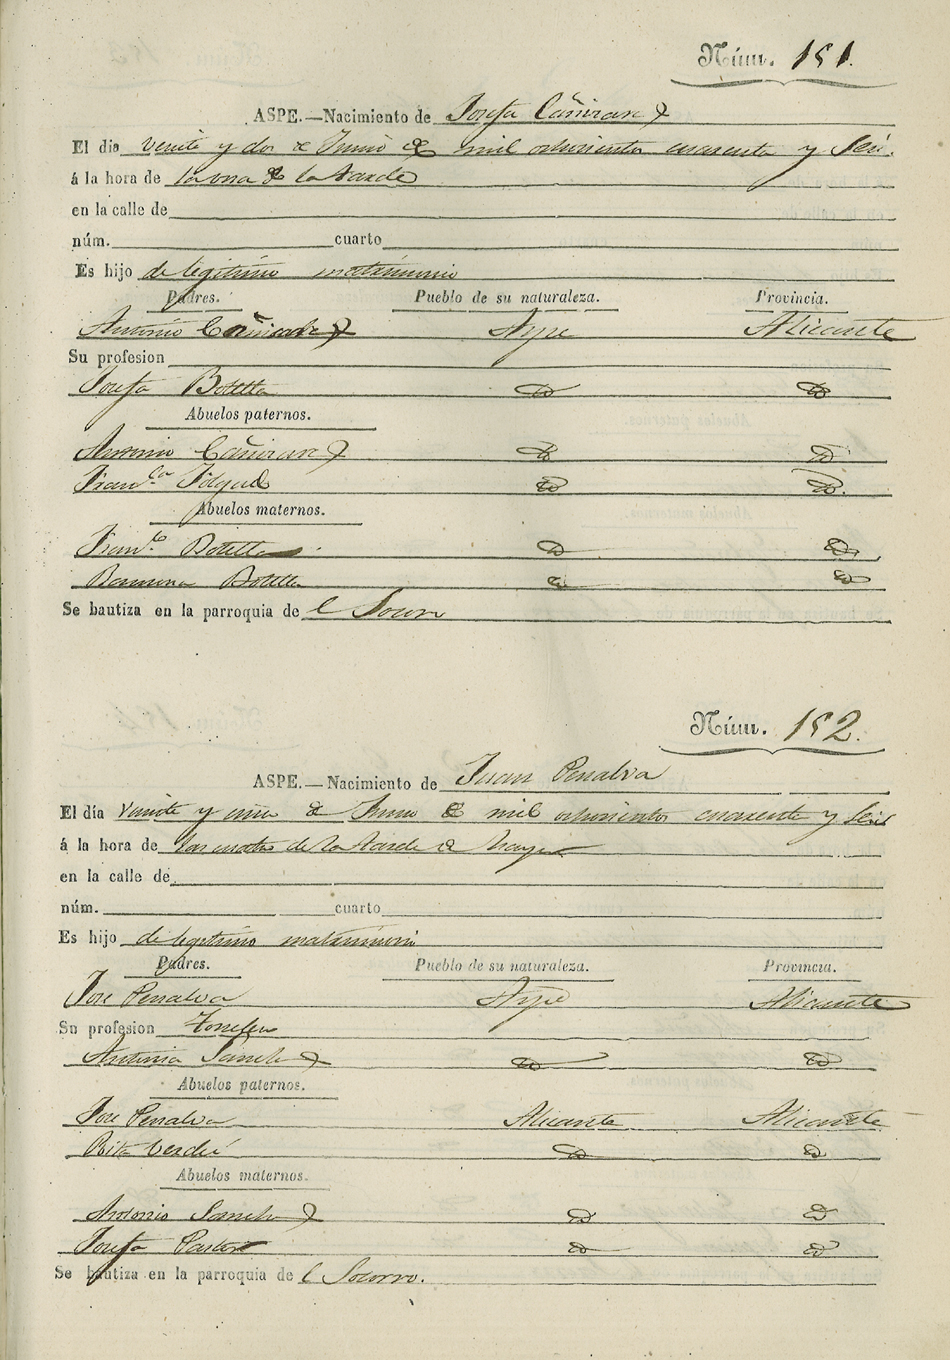 Núm. 151.
ASPE.—Nacimiento de Josefa Cañizarez
El día veinte y dos de Junio de mil ochocientos cuarenta y Seis.
á la hora de la una de la tarde
en la calle de
núm. cuarto
Es hijo de legitimo matrimonio
Padres. Pueblo de su naturaleza. Provincia.
Antonio Cañizarez Aspe Alicante
Su profesion
Josefa Botella Id Id
Abuelos paternos.
Antonio Cañizarez Id Id
Fran.ca Id Id.
Abuelos maternos.
Fran.co Botella Id Id
Ramona Botella Id Id
Se bautiza en la parroquia de l Socorro
Núm. 152.
ASPE.—Nacimiento de Juan Penalva
El día veinte y uno de Junio de mil ochocientos cuarenta y Seis
á la hora de las cuatro de la tarde de
en la calle de
núm. cuarto
Es hijo de legitimo matrimonio
Padres. Pueblo de su naturaleza. Provincia.
Jose Penalva Aspe Alicante
Su profesion
Antonia Sanchez Id Id
Abuelos paternos.
Jose Penalva Alicante Alicante
Rita Verdú Id Id
Abuelos maternos.
Antonio Sanchez Id Id
Josefa Pastor Id Id
Se bautiza en la parroquia de l Socorro.